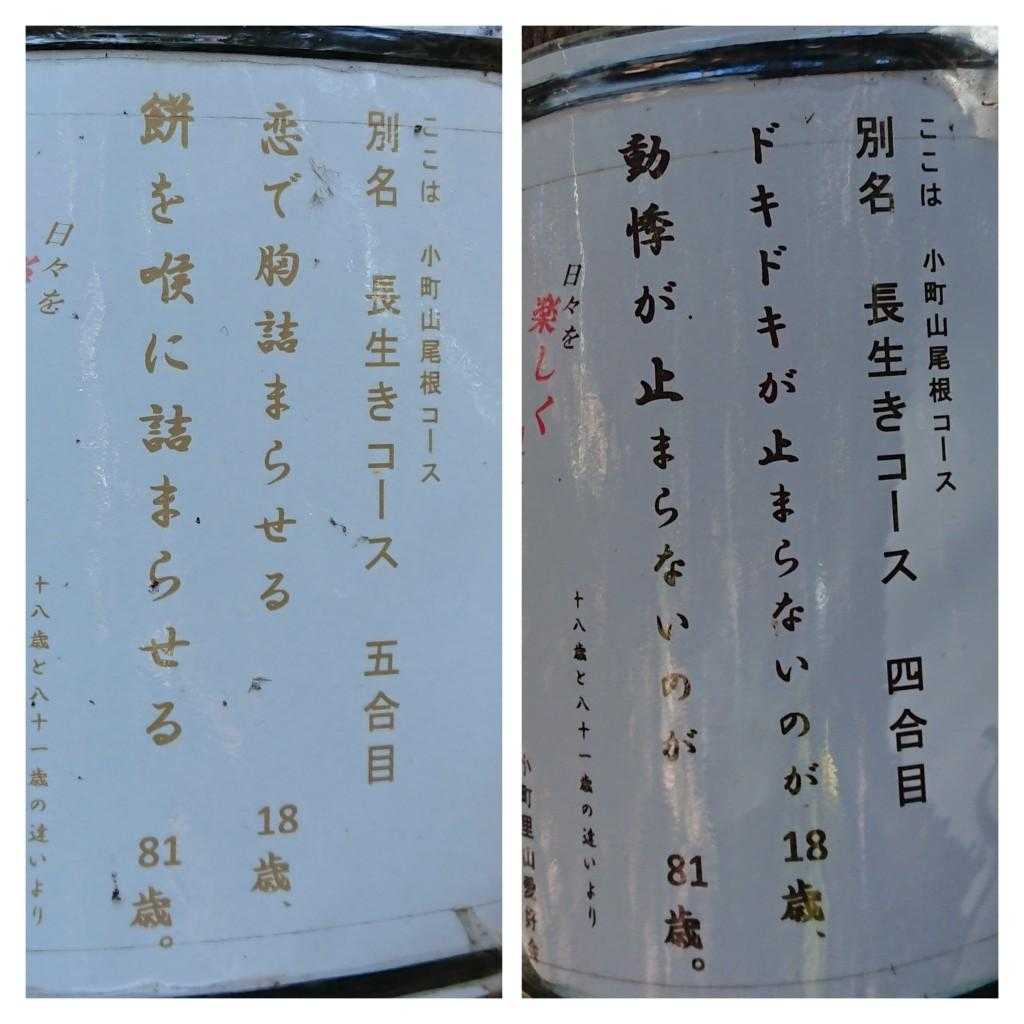 ここは 小町山尾根コース
別名 長生きコース 五合目
恋で胸詰まらせる 18歳、
餅を喉に詰まらせる 81歳。
日々を
十八歳と八十一歳の違いより
ここは 小町山尾根コース
別名 長生きコース 四合目
ドキドキが止まらないのが 18歳、
動悸が止まらないのが 81歳。
日々を
楽しく
十八歳と八十一歳の違いより
小町里山愛好会